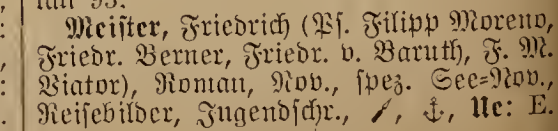 Meister, Friedrich (Ps. Filipp Moreno,
Friedr. Berner, Friedr. v. Baruth, F. M.
Viator), Roman, Nov., spez. See=Nov.,
Reisebilder, Jugendschr., ⚓, Ue: E.